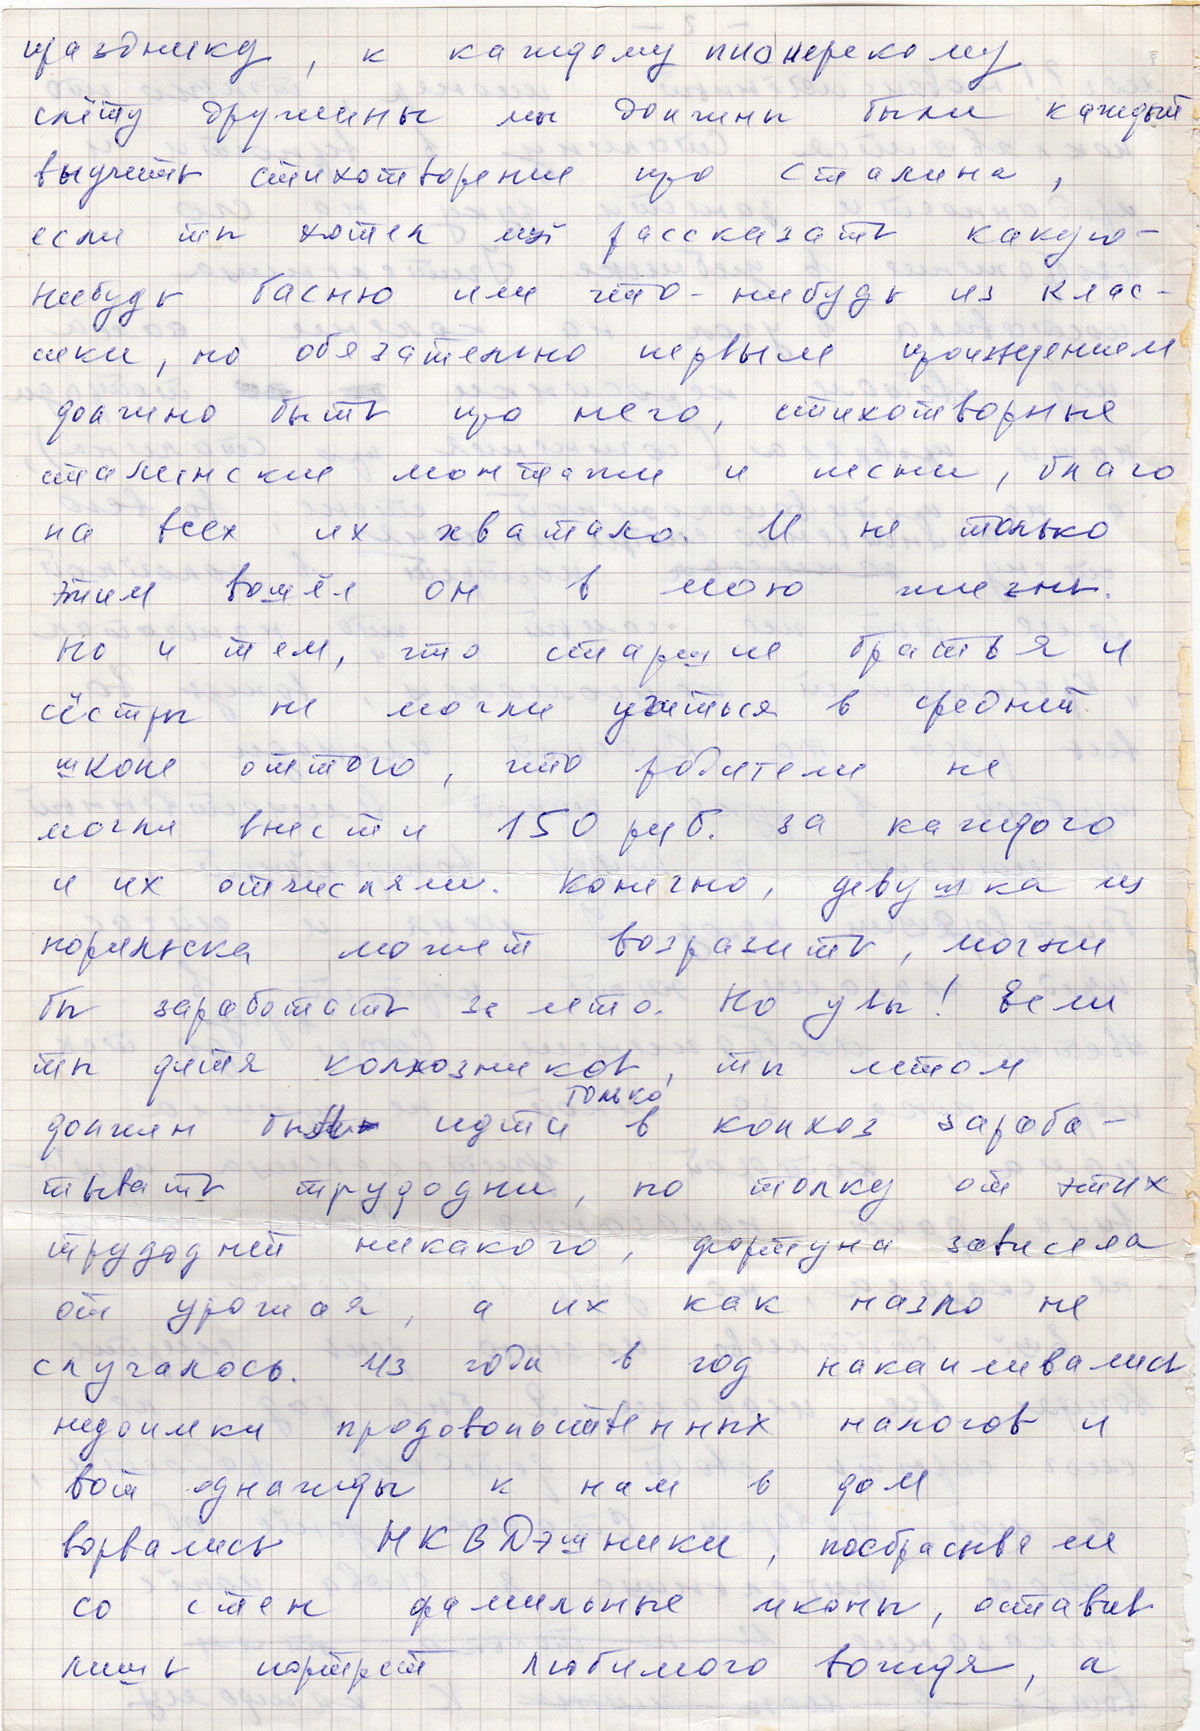 празднику, к каждому пионерскому
слёту дружины мы должны были каждый
выучить стихотворение про Сталина,
если ты хотел рассказать какую-
нибудь басню или что-нибудь из клас-
сики, но обязательно первым произведением
должно быть про него, стихотворные
сталинские монтажи и песни, благо
на всех их хватало. И не только
этим вошёл он в мою жизнь.
Но и тем, что старшие братья и
сёстры не могли учиться в средней
школе оттого, что родители не
могли внести 150 руб. за каждого
и их отчисляли. Конечно, девушка из
Норильска может возразить, могли
бы заработать за лето. Но увы! Если
ты дитя колхозников, ты летом
должен был идти только в колхоз зараба-
тывать трудодни, но толку от этих
трудодней никакого, фортуна зависела
от урожая, а их как назло не
случалось. Из года в год накапливались
недоимки продовольственных налогов и
вот однажды к нам в дом
ворвались НКВДэшники, посбрасывали
со стен фамильные иконы, оставив
лишь портрет любимого вождя, а